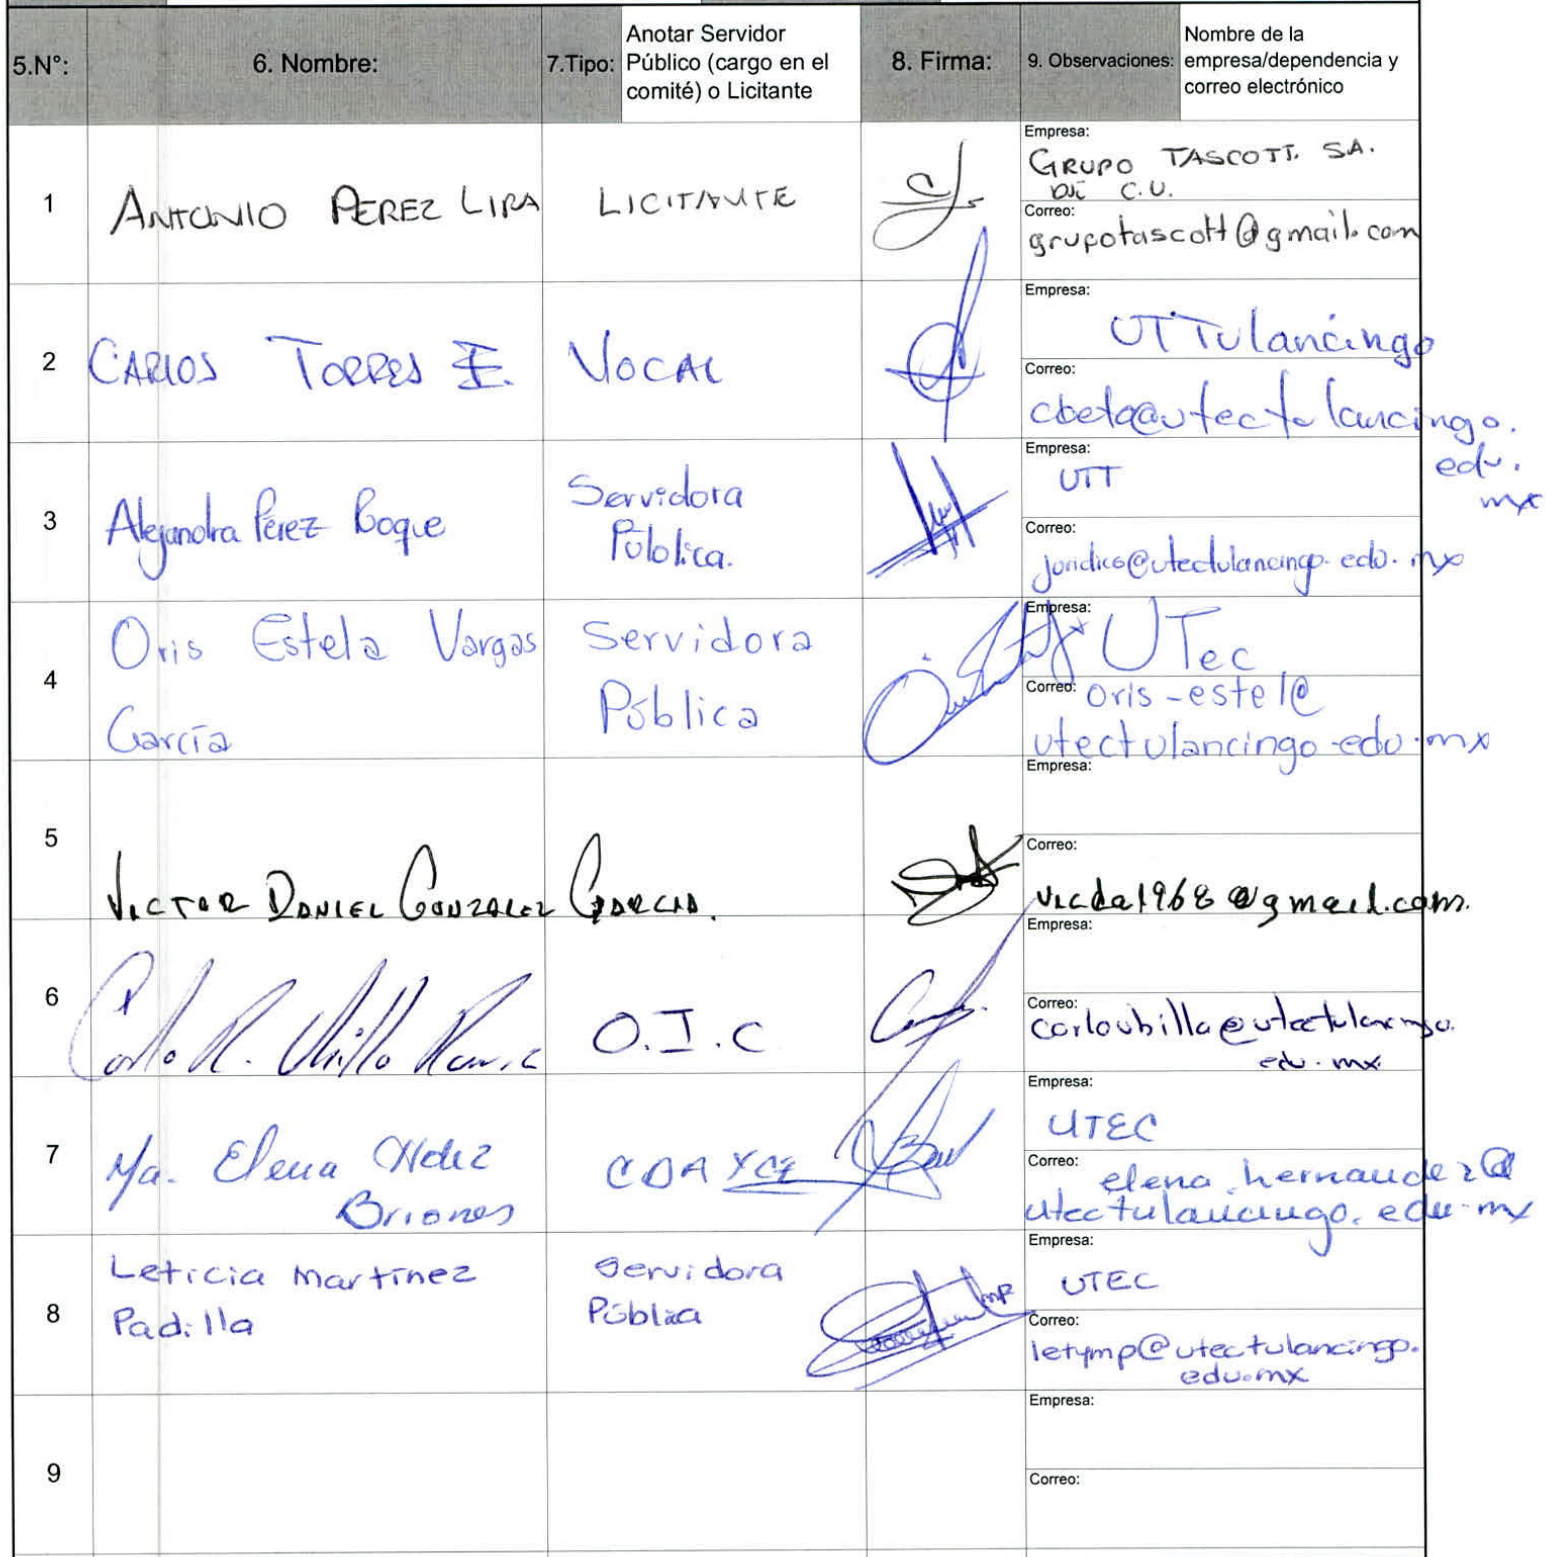 5.N°:
6. Nombre:
7.Tipo:
Anotar Servidor
Público (cargo en el
comité) o Licitante
8. Firma:
9. Observaciones:
Nombre de la
empresa/dependencia y
correo electrónico
1
ANTONIO PEREZ LIRA
LICITANTE
Empresa:
GRUPO TASCOTT. SA.
DE C.V.
Correo:
grupotascott@gmail.com
2
CARLOS TORRES
VOCAL
Empresa:
UTTulancingo
Correo:
cbeta@utectulancingo.
edu.
mx
3
Alejandra Pérez Roque
Servidora
Pública.
Empresa:
UTT
Correo:
juridico@utectulancingo.edu.mx
4
Oris Estela Vargas
García
Servidora
Pública
Empresa:
UTec
Correo:
oris-estel@
utectulancingo.edu.mx
5
VICTOR DANIEL GONZALEZ GARCIA.
Empresa:
Correo:
vicda1968@gmail.com.
6
Carlo R. Ubilla
O.I.C
Empresa:
Correo:
carloubilla@utectulancingo.
edu.mx
7
Ma. Elena Hdez
Briones
Empresa:
UTEC
Correo:
elena.hernandez@
utectulancingo.edu.mx
8
Leticia Martínez
Padilla
Servidora
Pública
Empresa:
UTEC
Correo:
letymp@utectulancingo.
edu.mx
9
Empresa:
Correo: